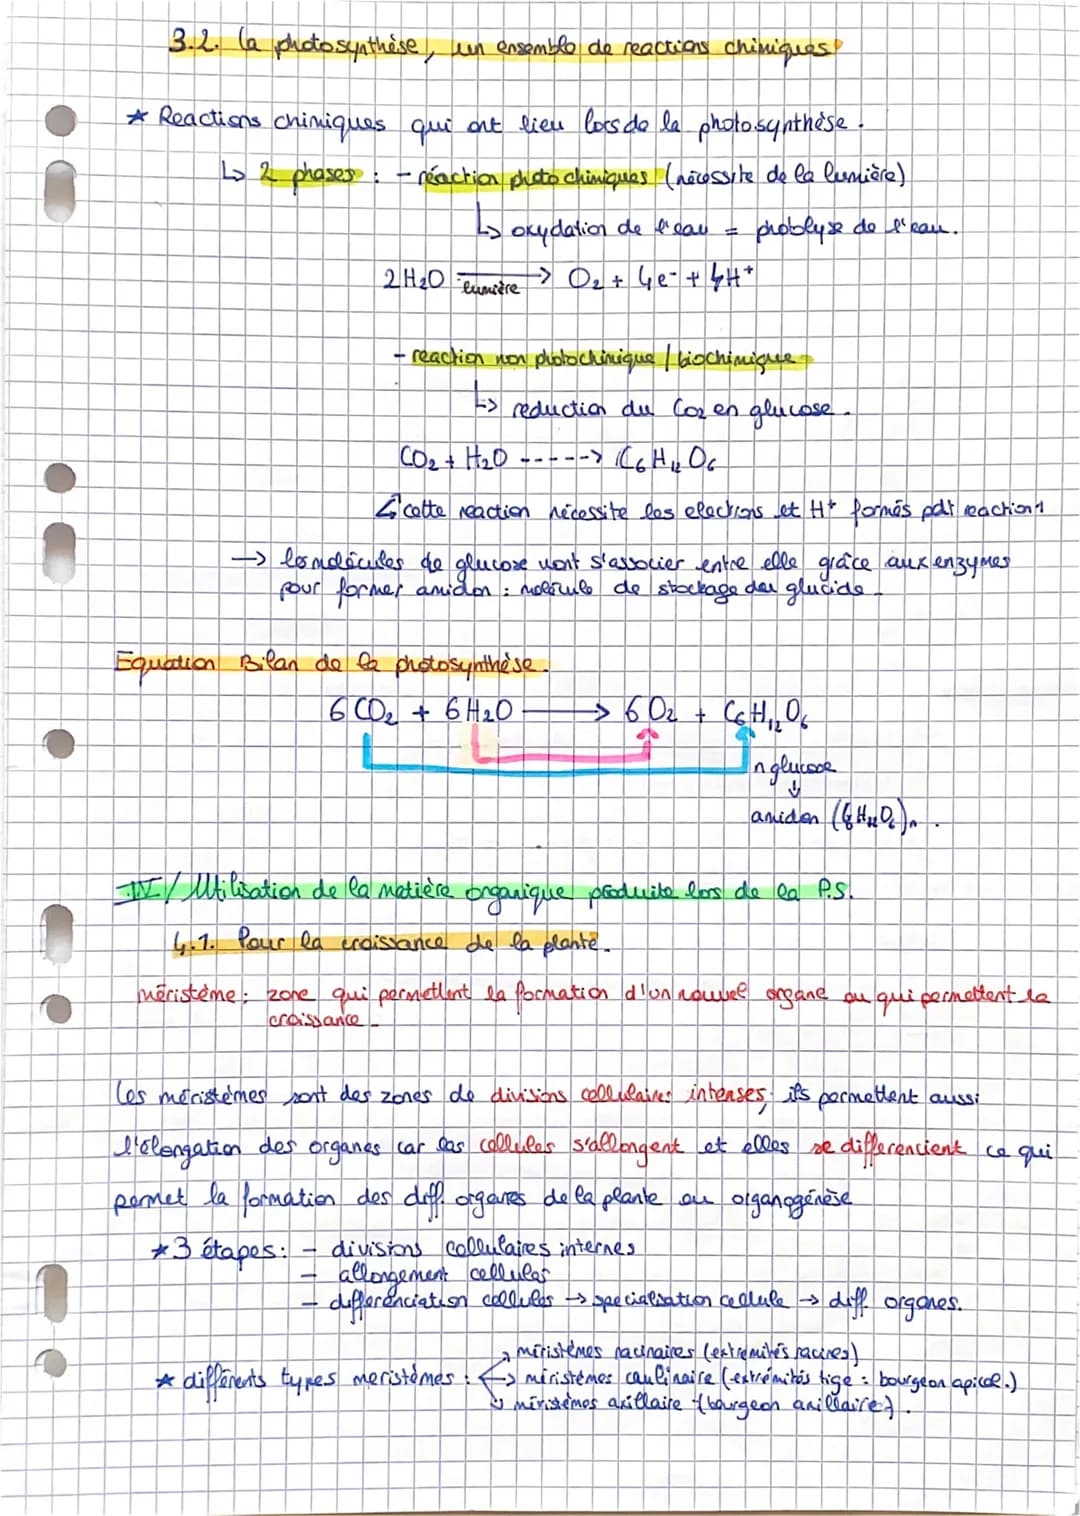 3.2. La photosynthèse, un ensemble de reactions chimiques
* Reactions chimiques qui ont lieu lors de la photosynthèse.
↳ 2 phases : - réaction photochimiques (nécessite de la lumière)
↳ oxydation de l'eau = photolyse de l'eau.
2H₂O → O₂ + 4e⁻ + 4H⁺
lumière
- reaction non photochimique / biochimique
↳ reduction du CO₂ en glucose.
CO₂ + H₂O -----> C₆H₁₂O₆
↳ cette reaction nécessite les electrons et H⁺ formés pdt reaction 1
→ les molécules de glucose vont s'associer entre elle grâce aux enzymes
pour former amidon : molécule de stockage des glucide.
Equation Bilan de la photosynthèse.
6 CO₂ + 6 H₂O → 6 O₂ + C₆H₁₂O₆
n glucose
↓
amidon (C₆H₁₂O₆)n.
IV/ Utilisation de la matière organique produite lors de la P.S.
4.1. Pour la croissance de la plante.
méristème : zone qui permettent la formation d'un nouvel organe ou qui permettent la
croissance.
Les méristèmes sont des zones de divisions cellulaires intenses; ils permettent aussi
l'élongation des organes car las cellules s'allongent et elles se differencient ce qui
permet la formation des diff organes de la plante ou organogénèse
* 3 étapes : - divisions cellulaires internes
- allongement cellules
- differenciation cellules → specialisation cellule → diff. organes.
→ méristèmes racinaires (extremités racines)
* différents types meristèmes : → méristèmes caulinaire (extrémités tige : bourgeon apical.)
↘ méristèmes axillaire (bourgeon axillaire).